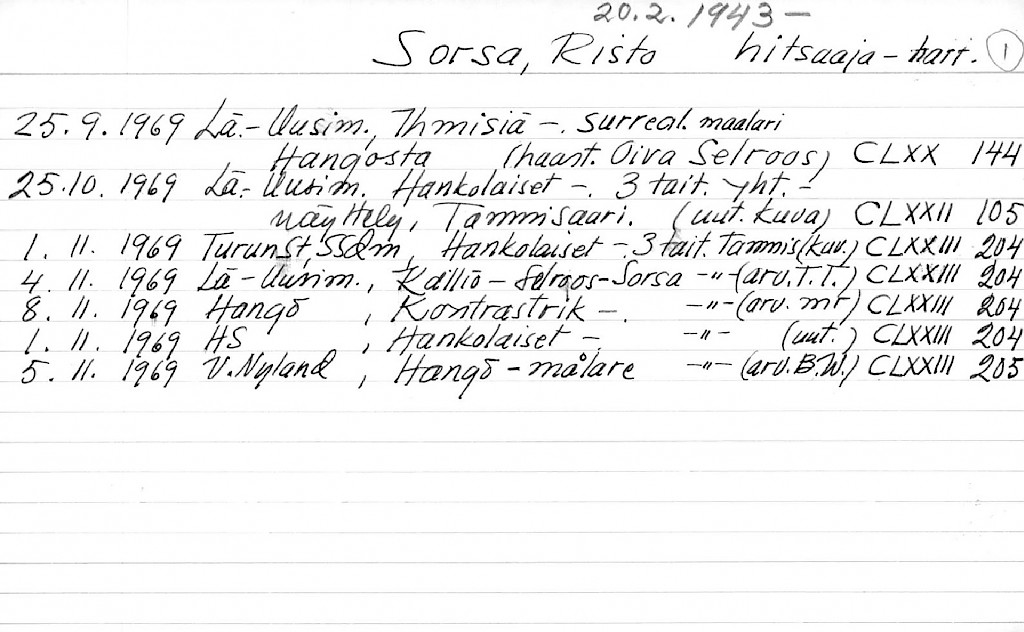 20.2.1943 –
Sorsa, Risto hitsaaja – harr. 1
25.9.1969 Lä.-Uusim., Ihmisiä –. surreal. maalari
Hangosta (haast. Oiva Selroos) CLXX 144
25.10.1969 Lä.-Uusim. Hankolaiset –. 3 tait. yht.-
näyttely, Tammisaari. (uut. kuva) CLXXII 105
1. 11. 1969 TurunSt, Hankolaiset – 3 tait. Tammis(kuv.) CLXXIII 204
4. 11. 1969 Lä-Uusim., Kallio – Selroos-Sorsa -"- (arv. T.T.) CLXXIII 204
8. 11. 1969 Hangö , Kontrastrik –. -"- (arv. mr) CLXXIII 204
1. 11. 1969 HS , Hankolaiset –. -"- (uut.) CLXXIII 204
5. 11. 1969 V.Nyland , Hangö – målare -"- (arv. B.W.) CLXXIII 205